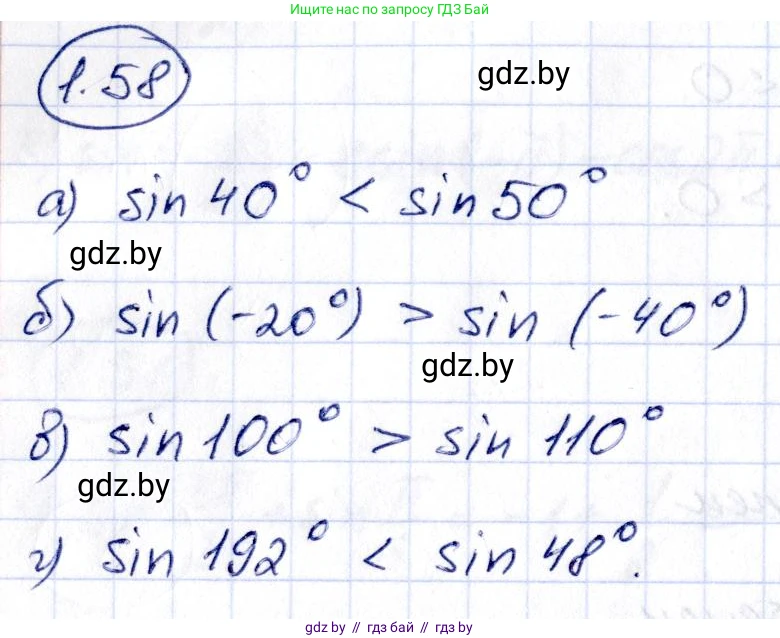 Ищите нас по запросу ГДЗ Бай
1.58
gdz.by
а) sin 40° < sin 50°
gdz.by
б) sin (-20°) > sin (-40°)
gdz.by
в) sin 100° > sin 110°
gdz.by
г) sin 192° < sin 48°.
gdz.by // гдз бай // gdz by